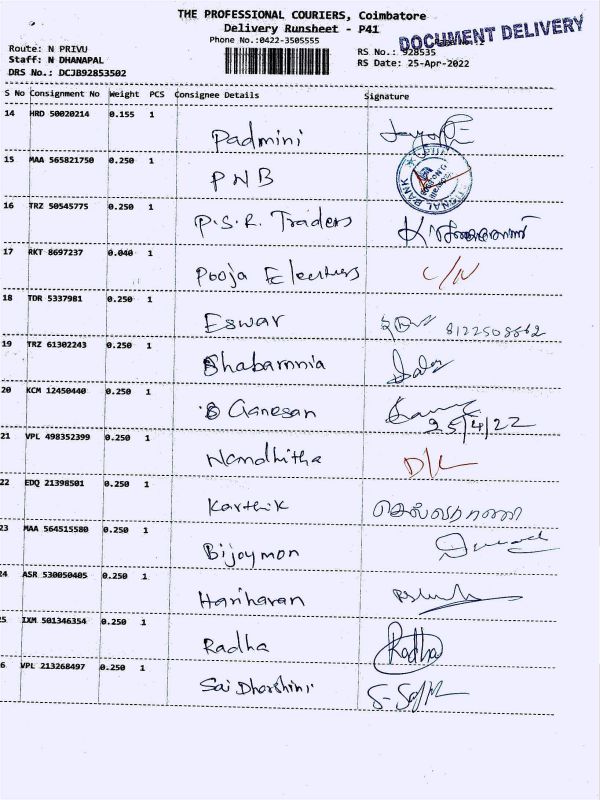 THE PROFESSIONAL COURIERS, Coimbatore
Delivery Runsheet - P41
Phone No.:0422-3505555
DOCUMENT DELIVERY
Route: N PRIVU
Staff: N DHANAPAL
DRS No.: DCJB92853502
RS No.: 928535
RS Date: 25-Apr-2022
S No Consignment No Weight PCS Consignee Details Signature
14 HRD 50020214 0.155 1 Padmini
15 MAA 565821750 0.250 1 PNB
16 TRZ 50545775 0.250 1 P.S.R. Traders
17 RKT 8697237 0.040 1 Pooja C/N
18 TDR 5337981 0.250 1 Eswar 8122508862
19 TRZ 61302243 0.250 1
20 KCM 12450440 0.250 1 Ganesan 25/4/22
21 VPL 498352399 0.250 1 Nandhitha D/L
22 EDQ 21398501 0.250 1 Karthik செல்வராணி
23 MAA 564515580 0.250 1 Bijoymon
24 ASR 530050405 0.250 1 Hariharan
25 IXM 501346354 0.250 1 Radha Radha
26 VPL 213268497 0.250 1 Sai Dharshini